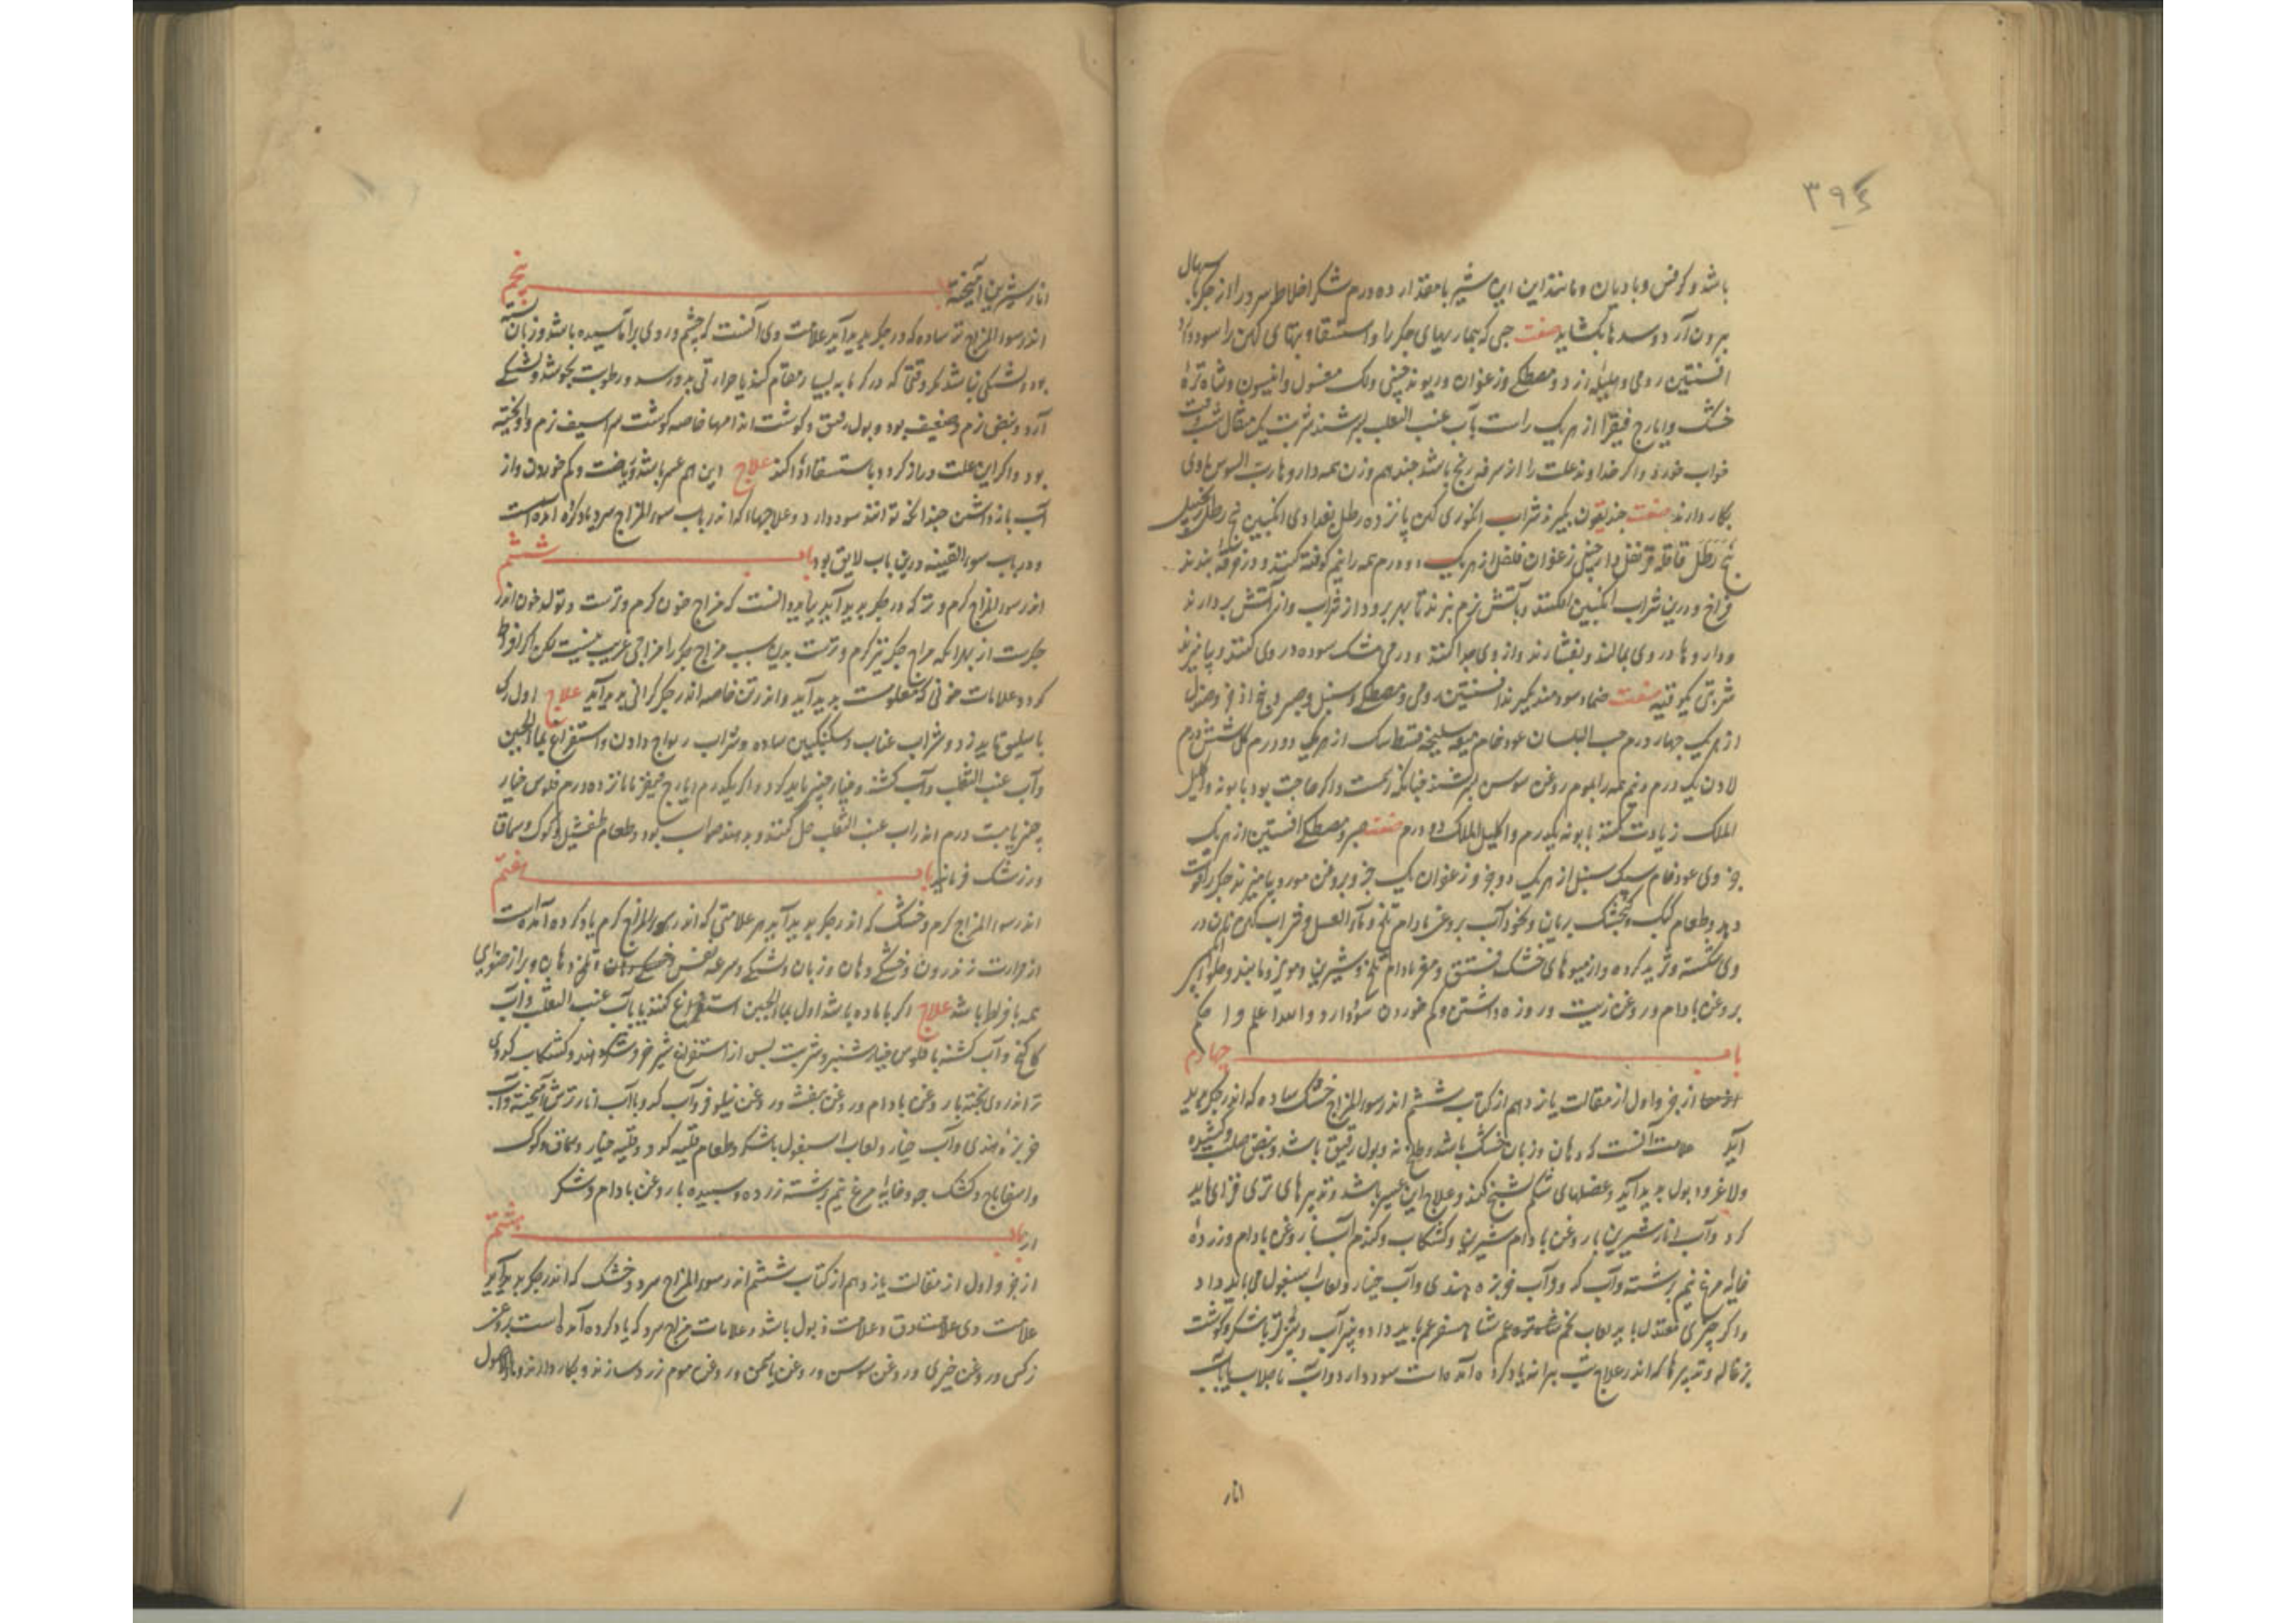 ۳۹۴
باشد و کرفس و بادیان و مانند این این شیر بامقدار ده درم شکر اخلاط سرد را از جکر باسهال
برون آرد و سدها بکشاید صفت حبی که بیماریهای جکر را و استسقا و تبهای کهن را سود دارد
افسنتین رومی و هلیله زرد و مصطکی و زعفران و ریوند چینی ولک مغسول و انیسون و شاه تره
خشک و ایارج فیقرا از هریک راست بآب عنب الثعلب بسرشند شربت یک مثقال شب وقت
خواب خورد و اکر خداوند علت را از سرفه رنج باشد چند هم وزن همه داروها رب السوس
بکار دارند صفت جندیقون بکیرند شراب انکوری کهن پانزده رطل بغدادی انکبین پنج رطل زنجبیل
پنج رطل قاقله قرنفل دارچینی زعفران فلفل از هریک دودرم همه را نیم کوفته کنند و در خرقه بندند
فراخ و درین شراب و انکبین افکنند و بآتش نرم بپزند تا بهره برود از شراب و از آتش بردارند
و داروها در وی بمالند و بفشارند و از وی جدا کنند و درمی مشک سوده در وی کنند و بیامیزند
شربتی یکوقیه صفت ضماد سودمند بکیرند افسنتین رومی و مصطکی و سنبل و صبر و بیخ اذخر و صندل
از هریک چهار درم حب البلسان عود خام میعه سلیخه قسط سک از هریک دو درم کل شش درم
لادن یک درم و نیم همه را بموم روغن سوسن بسرشند چنانکه رسمست و اکر حاجت بود بابونه و اکلیل
الملک زیادت کنند بابونه یکدرم و اکلیل الملک دو درم صفت صبر و مصطکی افسنتین از هریک
جزوی عود خام سک سنبل از هریک دو جزو زعفران یک جزو و بروغن مورد بیامیزند جکر را قوت
دهد و طعام کبک و کنجشک بریان و نخود آب بروغن بادام تلخ و ماء العسل و شراب کهن نان در
وی شکسته و ثرید کرده و از میوهای خشک فستق و مغز بادام تلخ و شیرین و مویز و مانند و حلوا
بروغن بادام و روغن زیت و روزه داشتن و کم خوردن سود دارد والله اعلم و احکم
باب چهارم
از جزو اول از مقالت یازدهم از کتاب ششم اندر سوء المزاج خشک ساده که اندر جکر پدید
آید علامت آنست که دهان و زبان خشک باشد و بول رقیق باشد و نبض صلب و کشیده
ولاغر و بول پدید آید و عضلهای شکم تشنج کند و علاج این عسیر باشد و تدبیرهای تری فزای باید
کرد و آب انار شیرین با روغن بادام شیرین و کشکاب و کندم آبا با روغن بادام و زرده
خایه مرغ نیم برشته و آب کدو و آب خربزه هندی و آب خیار و لعاب اسبغول می باید داد
و اکر چیزی معتدل باید لعاب تخم شاه تره هم شاهسفرغم باید داد و پنیرآب و شیر تر باشکر و کوشت
بزغاله و تدبیرها که اندر علاج تب یاد کرده آمده است سود دارد و آب با جلاب یا بآب
انار
انار شیرین آمیخته باب پنجم
اندر سوء المزاج تر ساده که در جکر پدید آید علامت وی آنست که چشم و روی برآماسیده باشد و زبان سسته
بود و تشنکی نباشد مکر وقتی که در کرمابه بسیار مقام کند یا حرارتی بدو رسد و رطوبت بجوشد و تشنکی
آرد و نبض نرم و ضعیف بود و بول رقیق و کوشت اندامها خاصه کوشت سراسیف نرم و آویخته
بود و اکر این علت دراز کردد باستسقا ادا کند علاج این هم عسر باشد و ریاضت و کم خوردن و از
آب بازداشتن چندانکه توانند سود دارد و علاجها که اندر باب سوء المزاج سرد یاد کرده آمده است
و در باب سوء القنیه درین باب لایق بود باب ششم
اندر سوء المزاج کرم و تر که در جکر پدید آید بباید دانست که مزاج خون کرم و ترست و تولد خون اندر
جکرست از بهرانکه مزاج جکر نیز کرم و ترست بدین سبب مزاج جکر را مزاجی غریب نیست لکن اکر افراط
کرد و علامات خونی که معلومست پدید آید و اندر تن خاصه اندر جکر کرانی پدید آید علاج اول رک
باسلیق باید زد و شراب عناب و سکنکبین ساده و شراب ریواج دادن و استفراغ بماء الجبن
و آب عنب الثعلب و آب کشنه و خیار چنبر باید کرد و اکر یکدرم ایارج فیقرا با پانزده درم فلوس خیار
چنبر یا بیست درم اندر آب عنب الثعلب حل کنند و بدهند صواب بود و طعام طفشیل و کوک و سماق
و زرشک فرمایند باب هفتم
اندر سوء المزاج کرم و خشک که اندر جکر پدید آید هر علامتی که اندر سوء المزاج کرم یاد کرده آمده است
از حرارت اندرون و خشکی دهان و زبان و تشنکی و سرعه نبض و تلخی دهان و براز صفرایی
همه بافراط باشد علاج اکر با ماده باشد اول بماء الجبن استفراغ کنند یا بآب عنب الثعلب و آب
کاکنج و آب کشنه با فلوس خیار شنبر و شربت پس از استفراغ شیر خر و شکر دهند و کشکاب کدوی
تر اندر وی پخته با روغن بادام و روغن بنفشه و روغن نیلوفر و آب کدو با آب انار ترش آمیخته و آب
خربزه هندی و آب خیار و لعاب اسبغول باشکر و طعام قلیه کدو و قلیه خیار و سماق و کوک
و اسفاناج و کشک جو و خایه مرغ نیم برشته زرده و سپیده با روغن بادام و شکر
باب هشتم
از جزو اول از مقالت یازدهم از کتاب ششم اندر سوء المزاج سرد و خشک که اندر جکر پدید آید
علامت وی علامت دق و علامت ذبول باشد و علامات مزاج سرد که یاد کرده آمده است بروغن
نرکس و روغن خیری و روغن سوسن و روغن یاسمن و روغن موم زرد سازند و بکار دارند و ماء الاصول